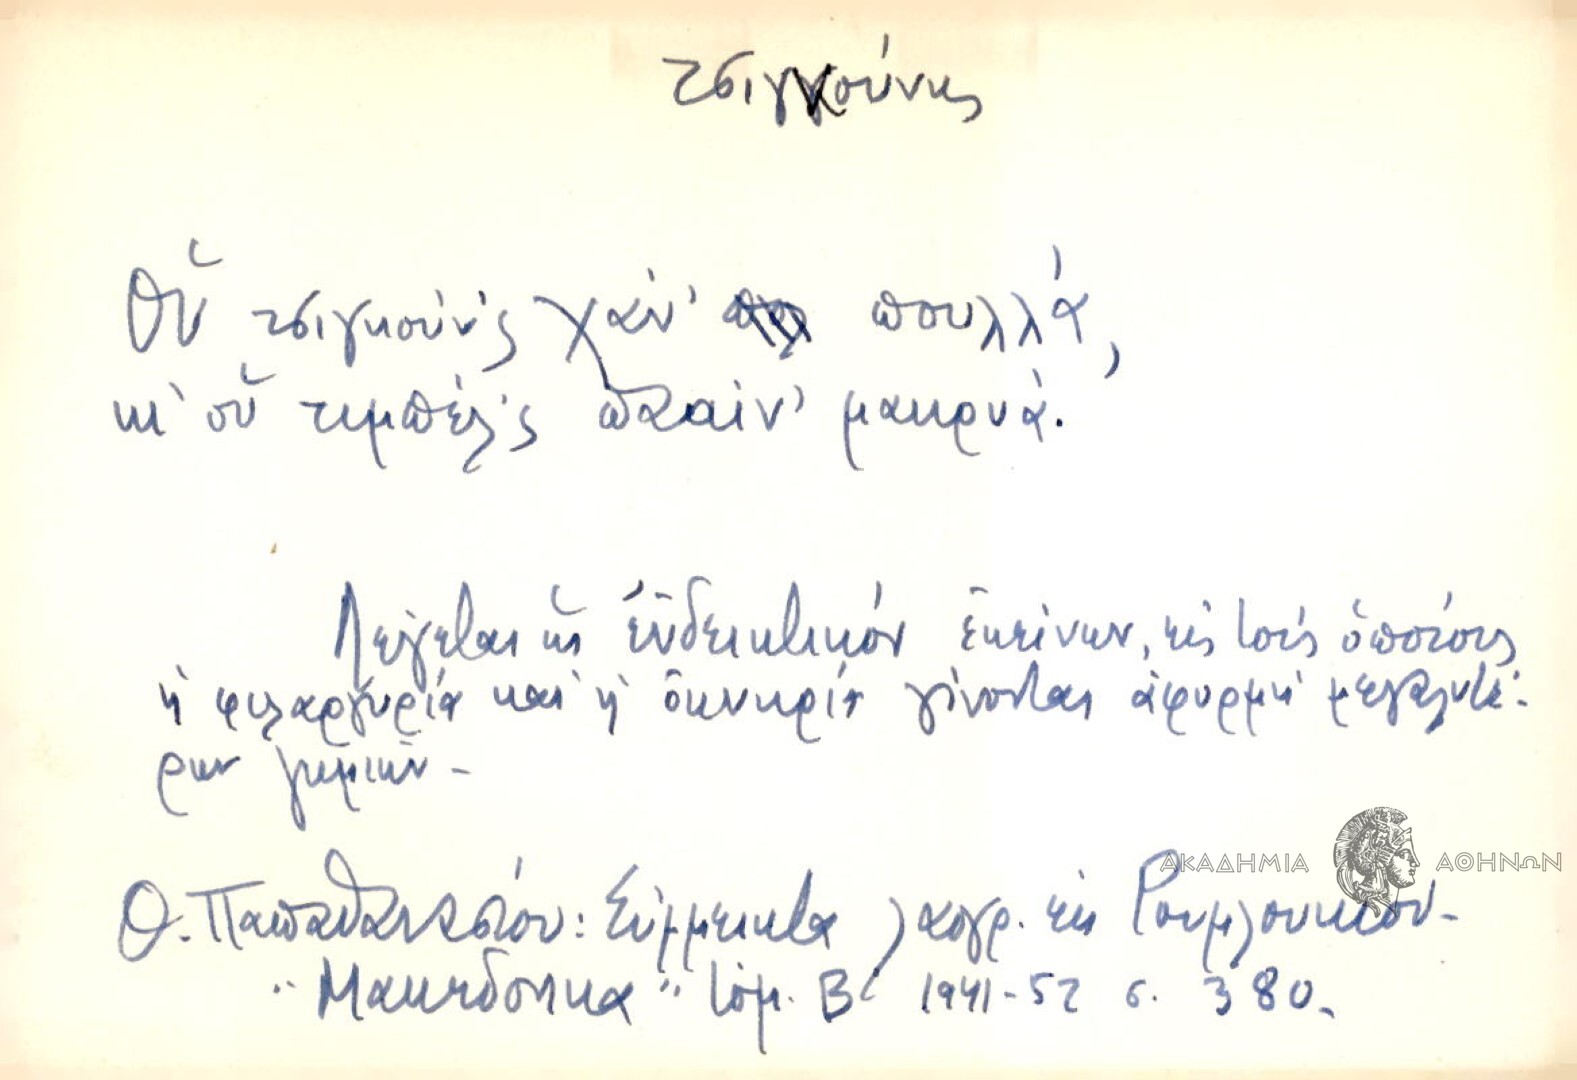 τσιγκούνης
Οὓ τσιγκούν'ς χάν' πουλλά,
κι' οὓ τιμπέλ'ς παγαίν' μακρυά.
Λέγεται ὡς ἐνδεικτικόν ἐκείνων, εἰς τούς ὁποίους
ἡ φιλαργυρία καί ἡ ὀκνηρία γίνονται ἀφορμή μεγαλυτέ-
ρων ζημιῶν -
Θ. Παπαθανασίου: Σύμμεικτα λαογρ. ἐκ Ρουμλουκίου -
"Μακεδονικα" τόμ. Β' 1941-52 σ. 380.
ΑΚΑΔΗΜΙΑ ΑΘΗΝΩΝ